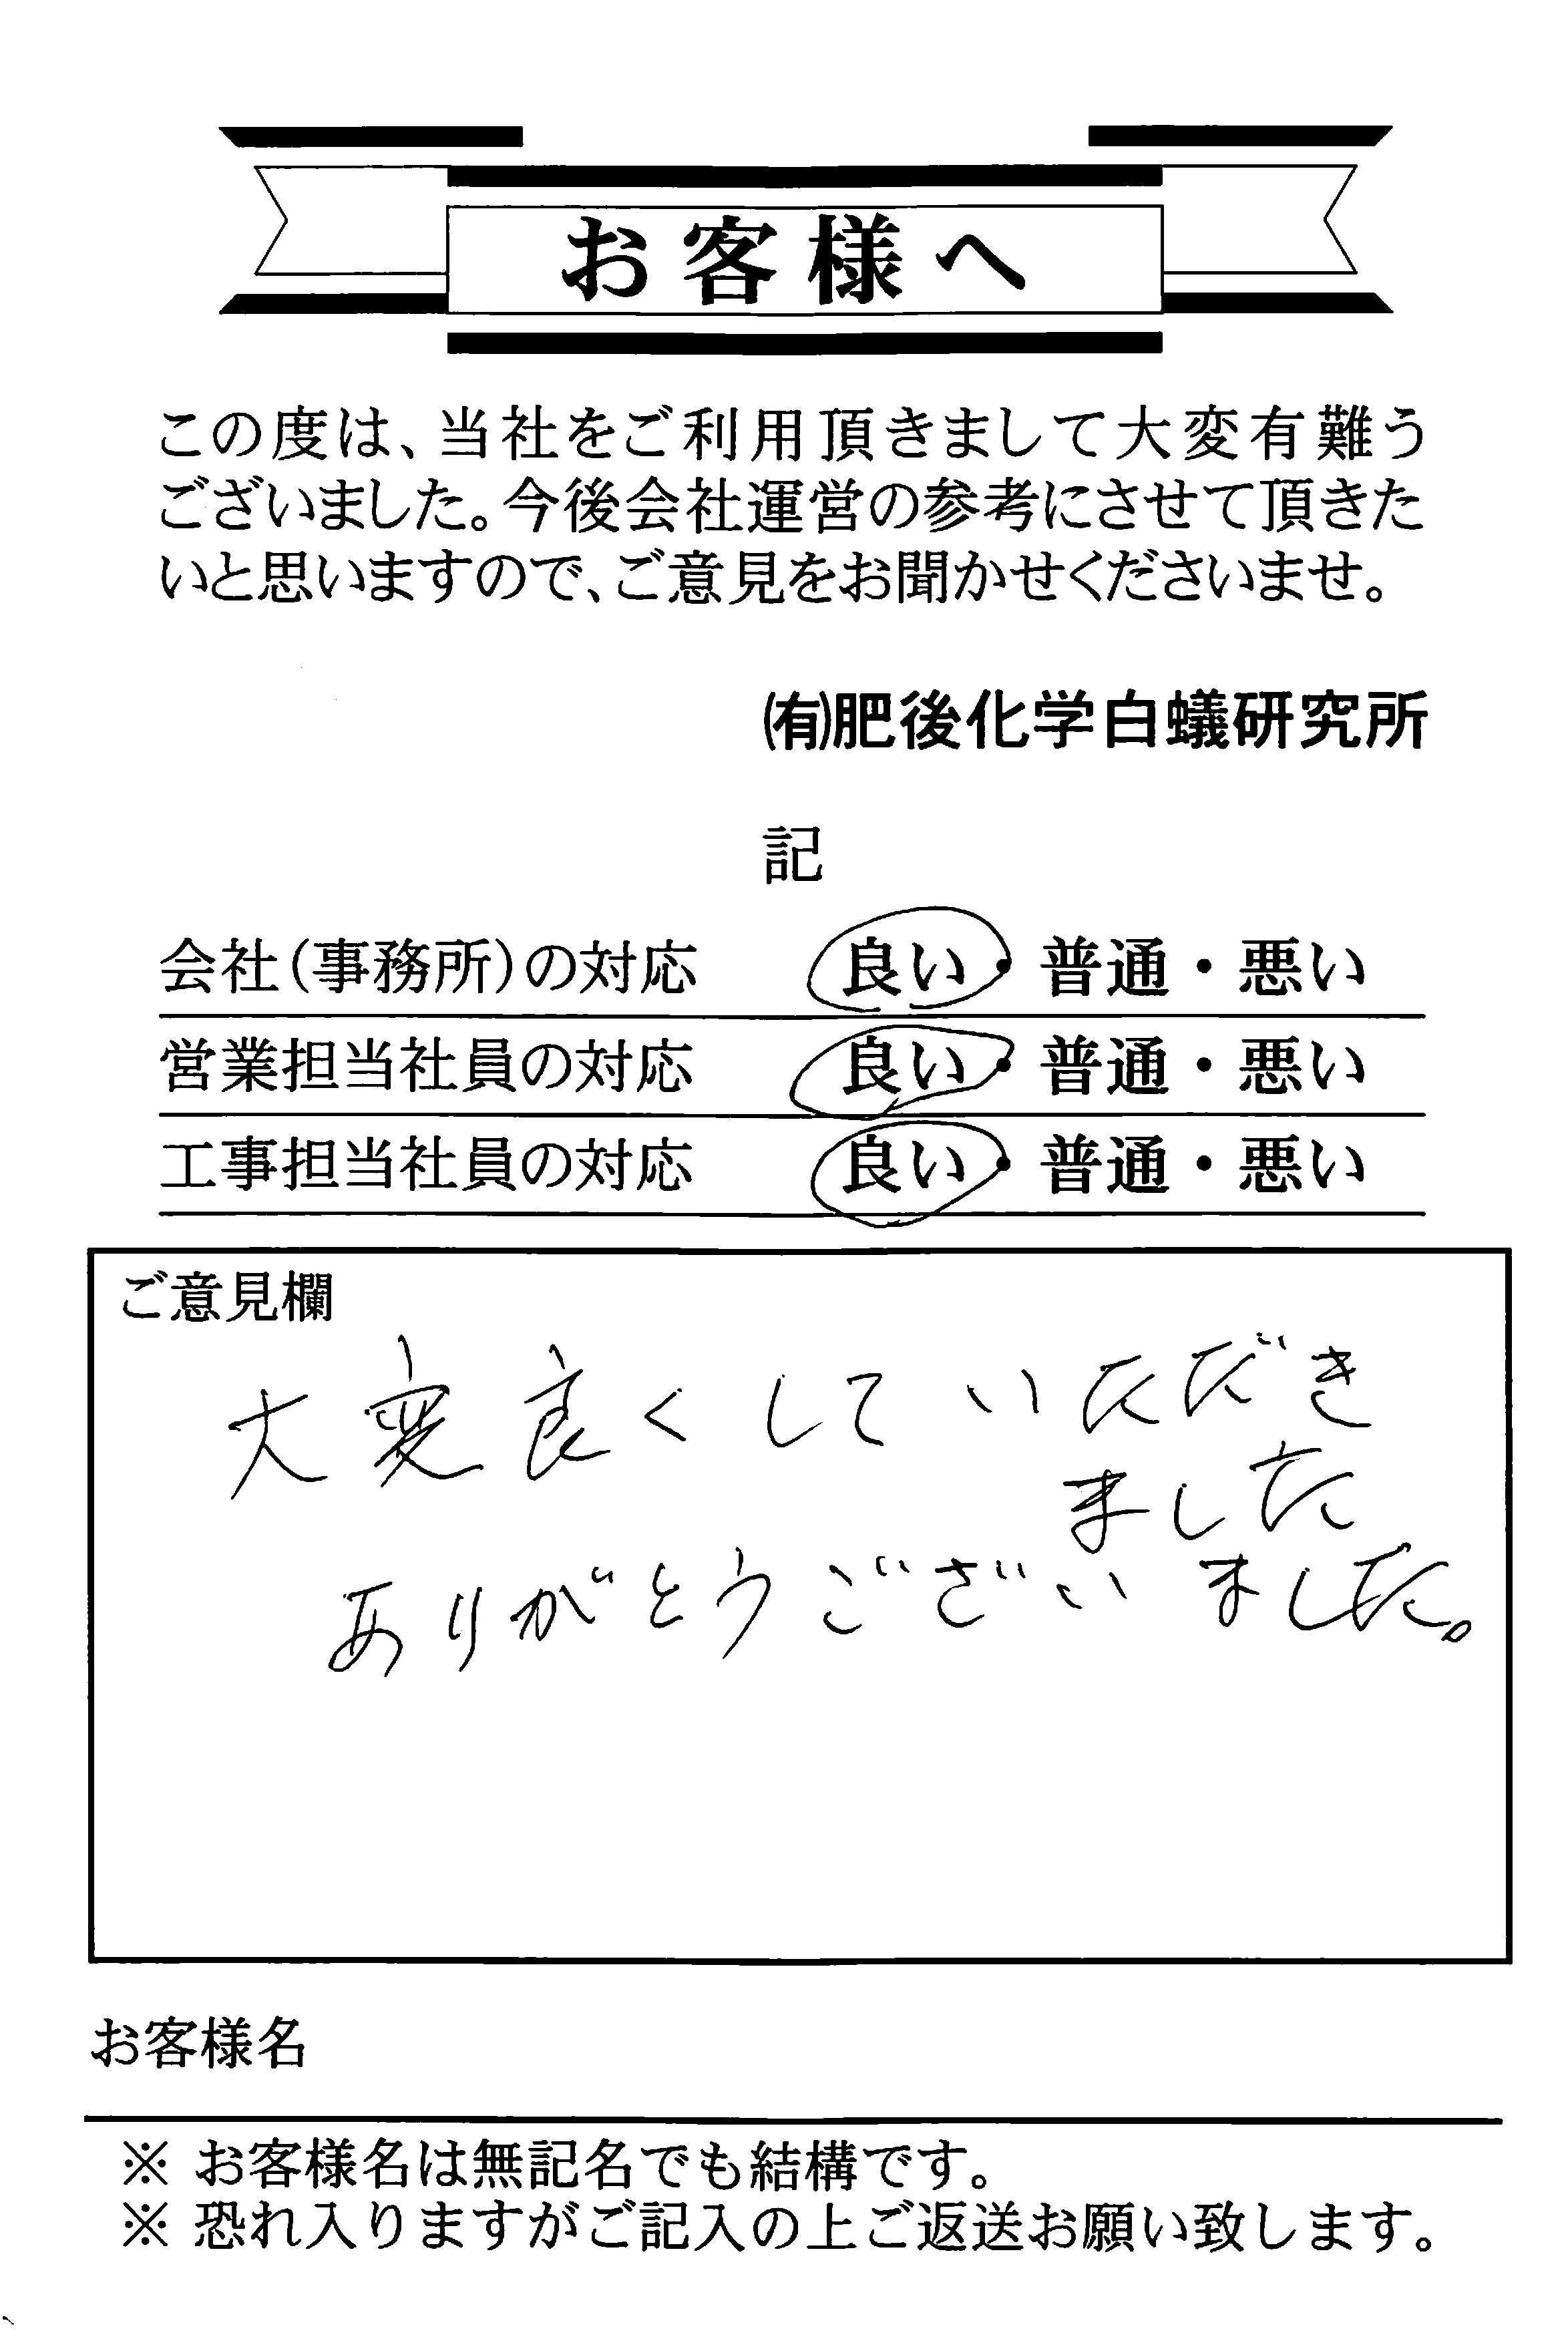 お客様へ
この度は、当社をご利用頂きまして大変有難う
ございました。今後会社運営の参考にさせて頂きた
いと思いますので、ご意見をお聞かせくださいませ。
㈲肥後化学白蟻研究所
記
会社（事務所）の対応 良い・普通・悪い
営業担当社員の対応 良い・普通・悪い
工事担当社員の対応 良い・普通・悪い
ご意見欄
大変良くしていただき
ました
ありがとうございました。
お客様名
※ お客様名は無記名でも結構です。
※ 恐れ入りますがご記入の上ご返送お願い致します。